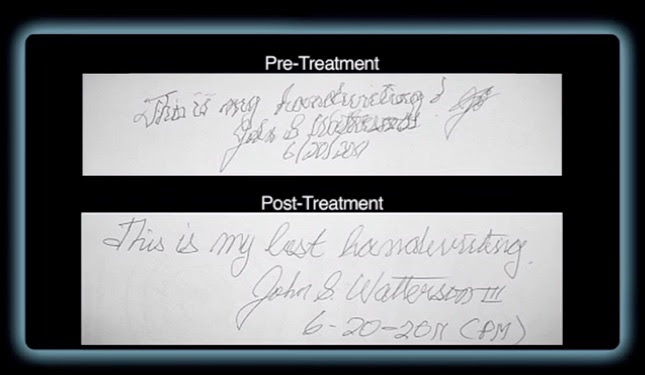 Pre-Treatment
This is my handwriting
John S
6/20/2011
Post-Treatment
This is my best handwriting.
John S. Watterson III
6-20-2011 (PM)